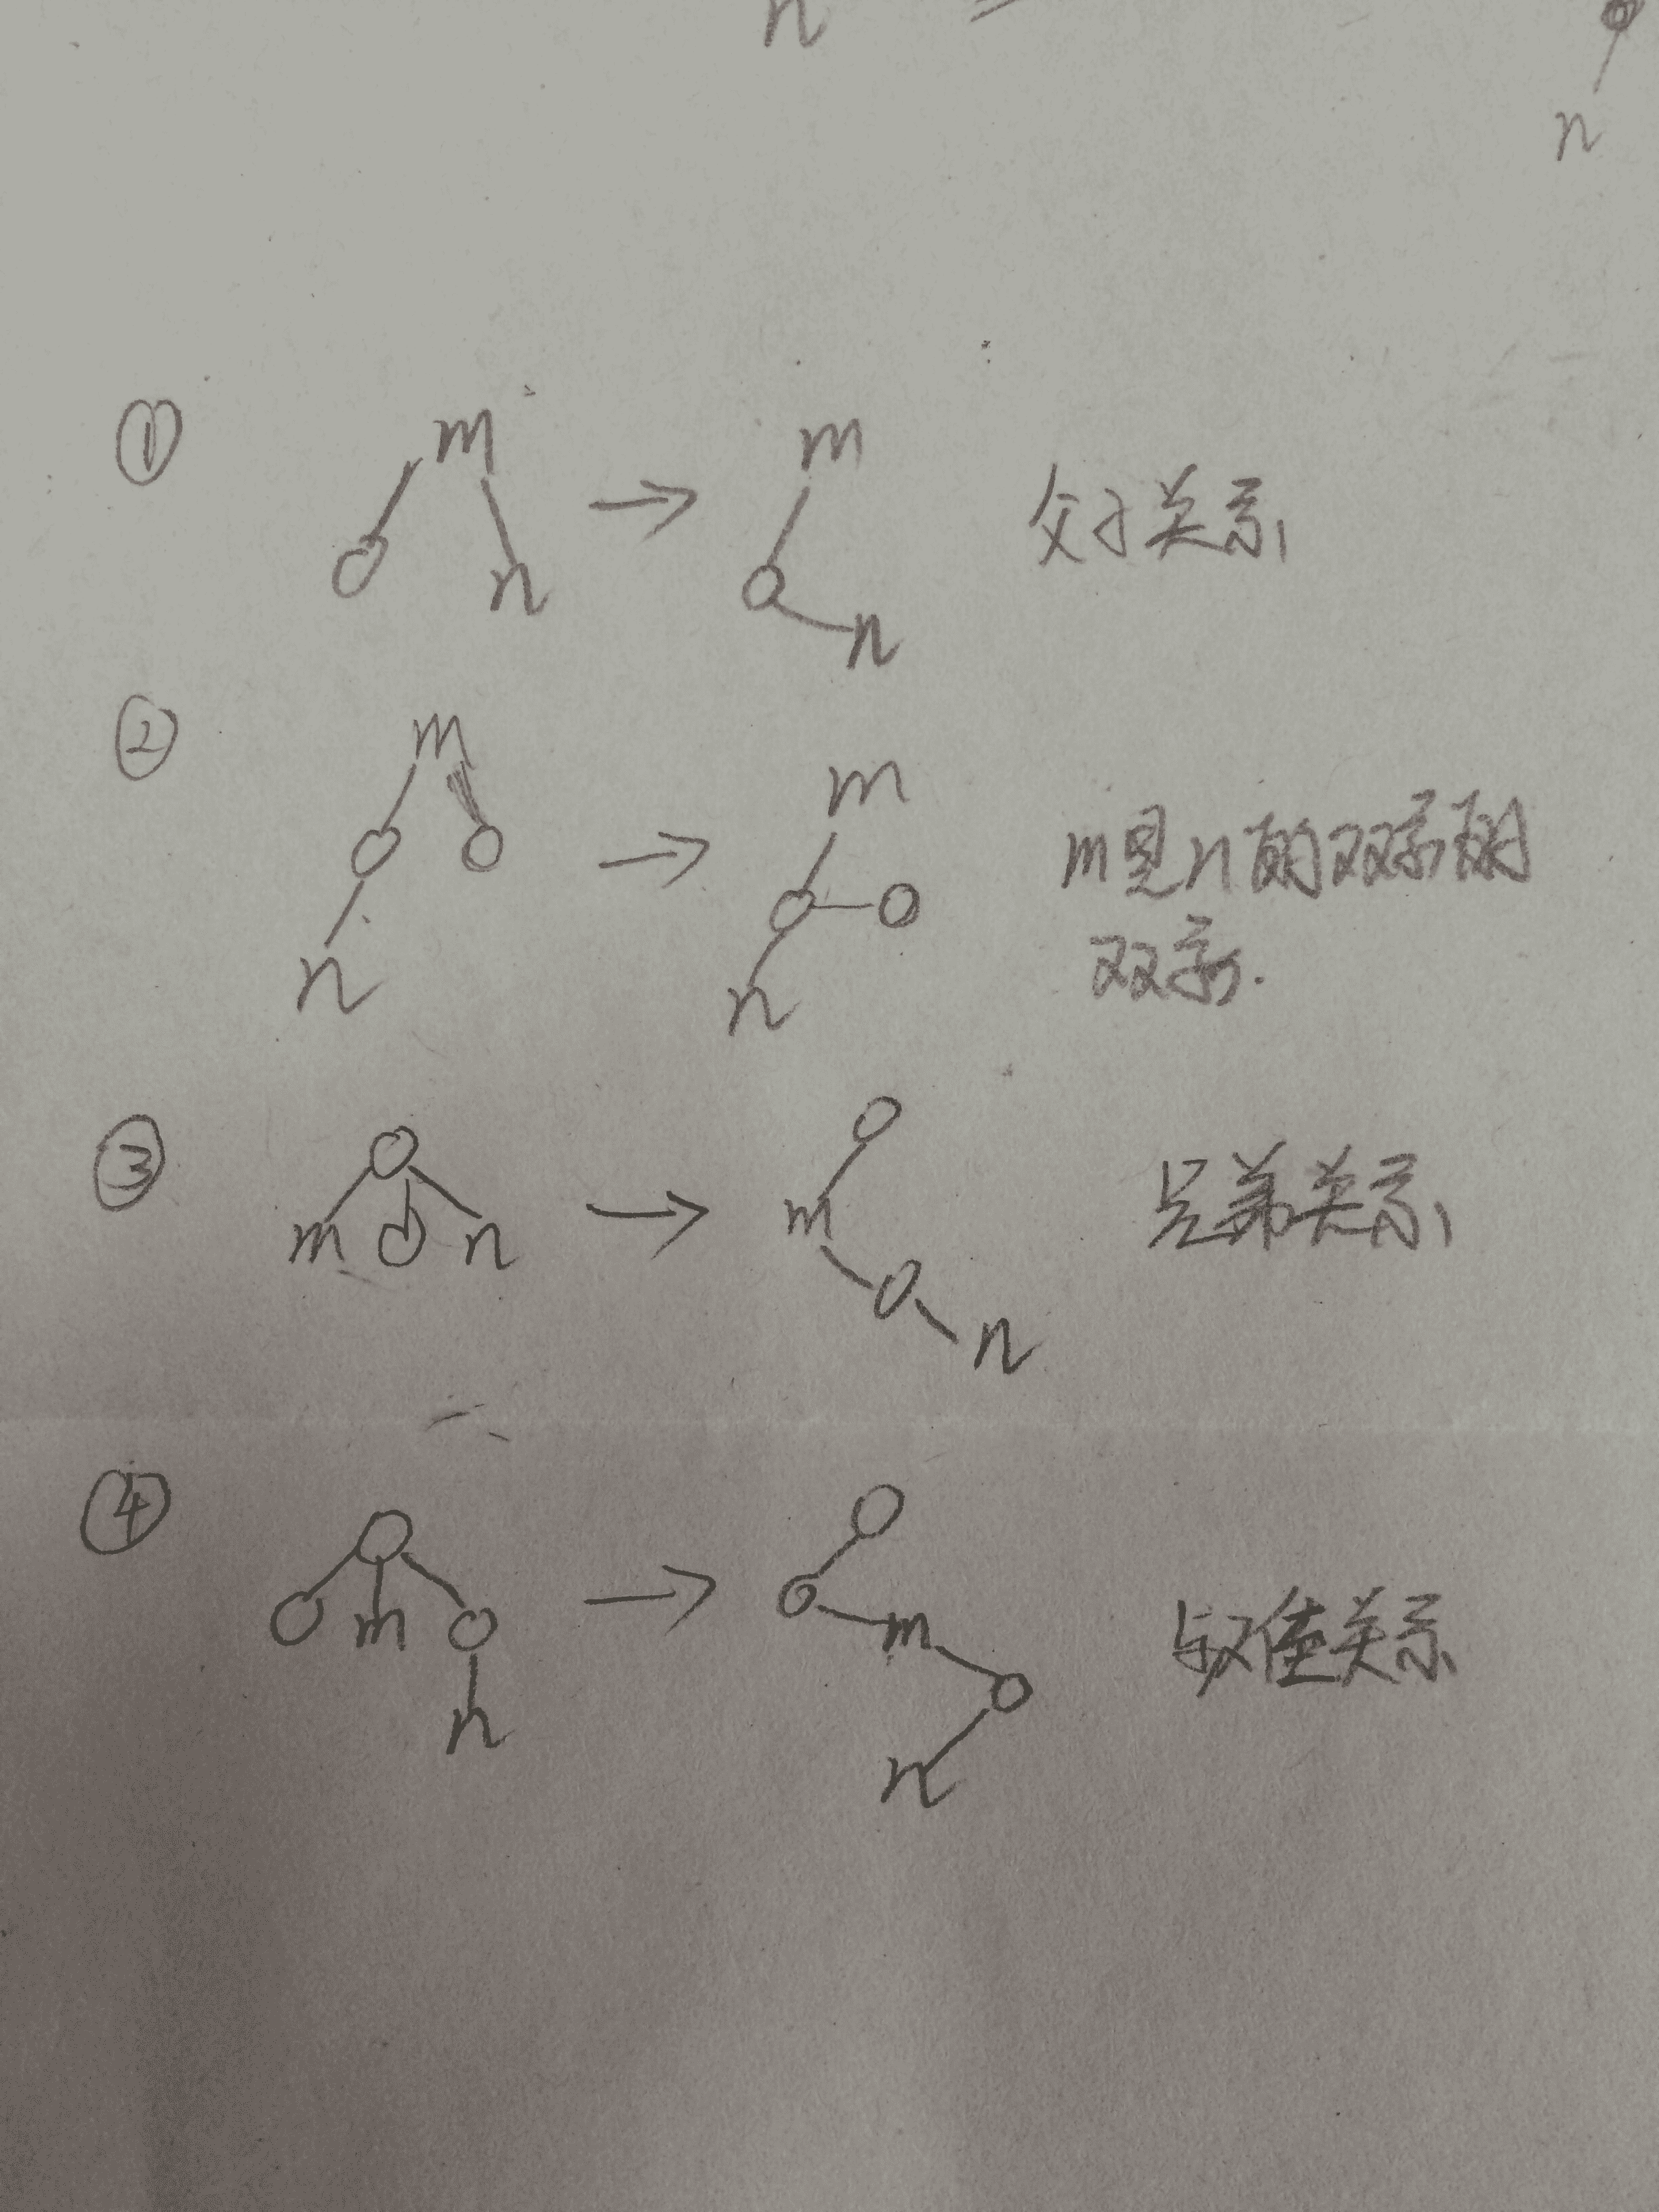 n =
n
① m n → m n 父子关系
② m n → m n m是n的双亲的
双亲.
③ m n → m n 兄弟关系
④ m n → m n 叔侄关系